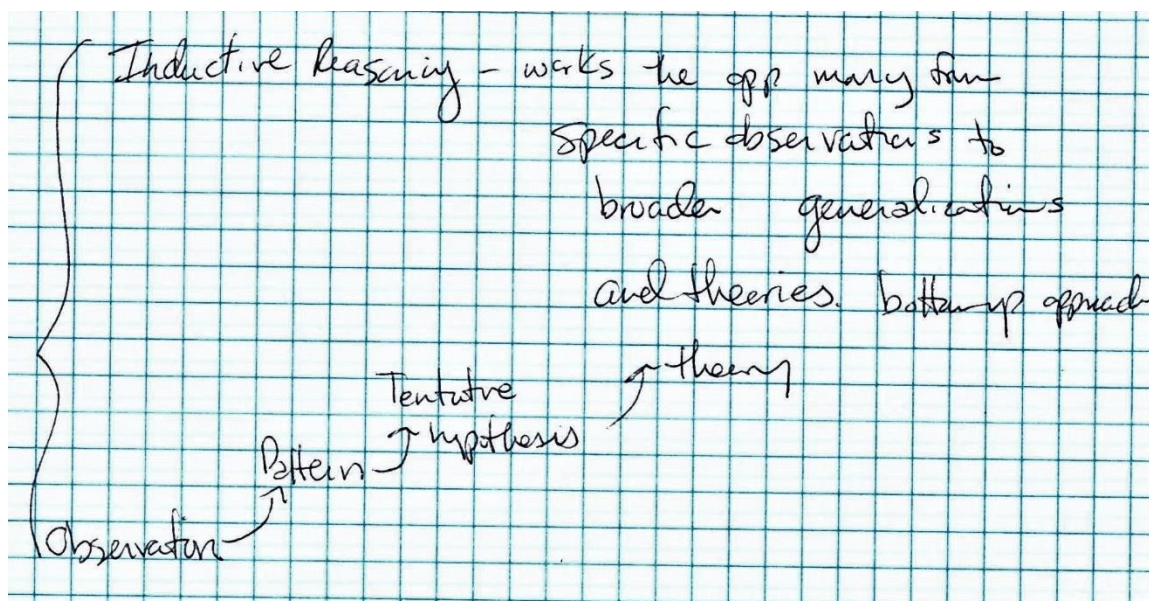 Inductive Reasoning - works the opp moving from
specific observations to
broader generalizations
and theories. bottom up approach
theory
Tentative
hypothesis
Pattern
Observation